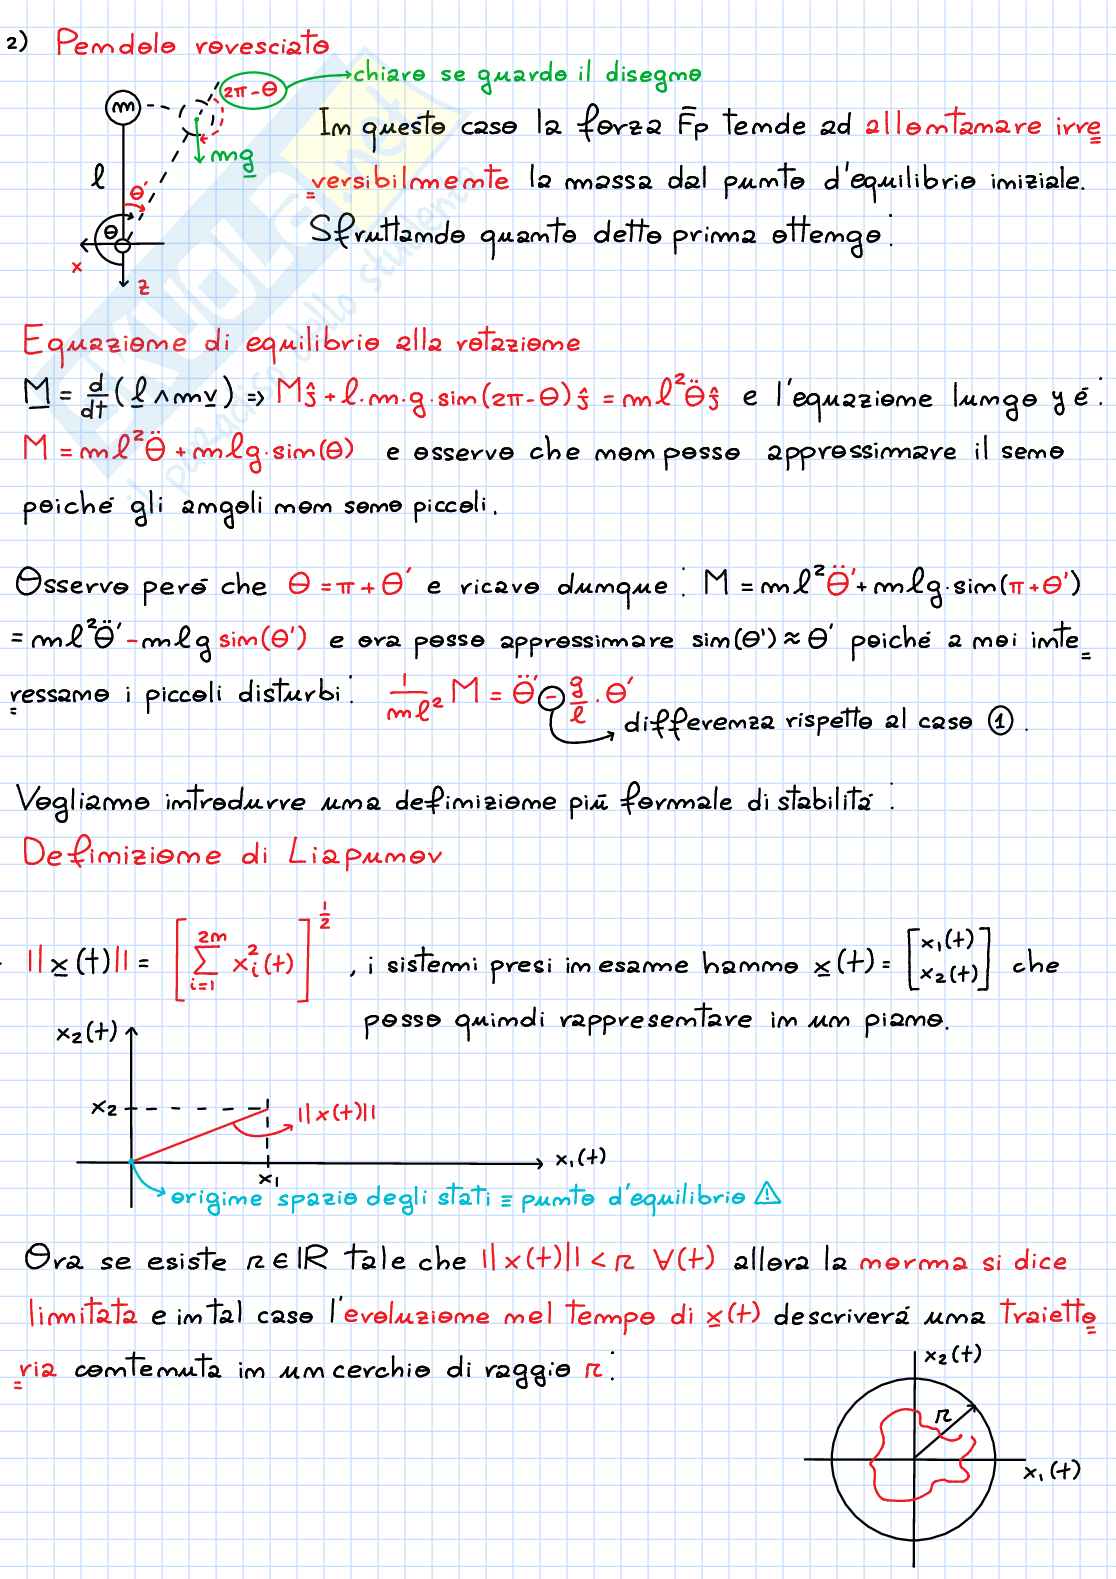 2) Pendolo rovesciato
2π-θ chiaro se guardo il disegno
m
In questo caso la forza Fp tende ad allontanare irre
mg
l
versibilmente la massa dal punto d'equilibrio iniziale.
θ'
Sfruttando quanto detto prima ottengo:
θ
x
z
Equazione di equilibrio alla rotazione
M = d/dt (l ∧ mv) => Mĵ + l·m·g·sin(2π-θ)ĵ = ml²θ̈ĵ e l'equazione lungo y é:
M = ml²θ̈ + mlg·sin(θ) e osservo che non posso approssimare il seno
poiché gli angoli non sono piccoli.
Osservo peró che θ = π + θ' e ricavo dunque: M = ml²θ̈' + mlg·sin(π+θ')
= ml²θ̈' - mlg sin(θ') e ora posso approssimare sin(θ') ≈ θ' poiché a noi inte
ressano i piccoli disturbi: 1/ml² M = θ̈' - g/l · θ'
differenza rispetto al caso 1.
Vogliamo introdurre una definizione piú formale di stabilitá:
Definizione di Liapunov
||x(t)|| = [∑_{i=1}^{2n} x_i²(t)]^{1/2}, i sistemi presi in esame hanno x(t) = [x₁(t) x₂(t)] che
posso quindi rappresentare in un piano.
x₂(t)
x₂
||x(t)||
x₁(t)
x₁
origine spazio degli stati ≡ punto d'equilibrio ⚠
Ora se esiste r∈ℝ tale che ||x(t)|| < r ∀(t) allora la norma si dice
limitata e in tal caso l'evoluzione nel tempo di x(t) descriverá una traietto
ria contenuta in un cerchio di raggio r:
x₂(t)
r
x₁(t)